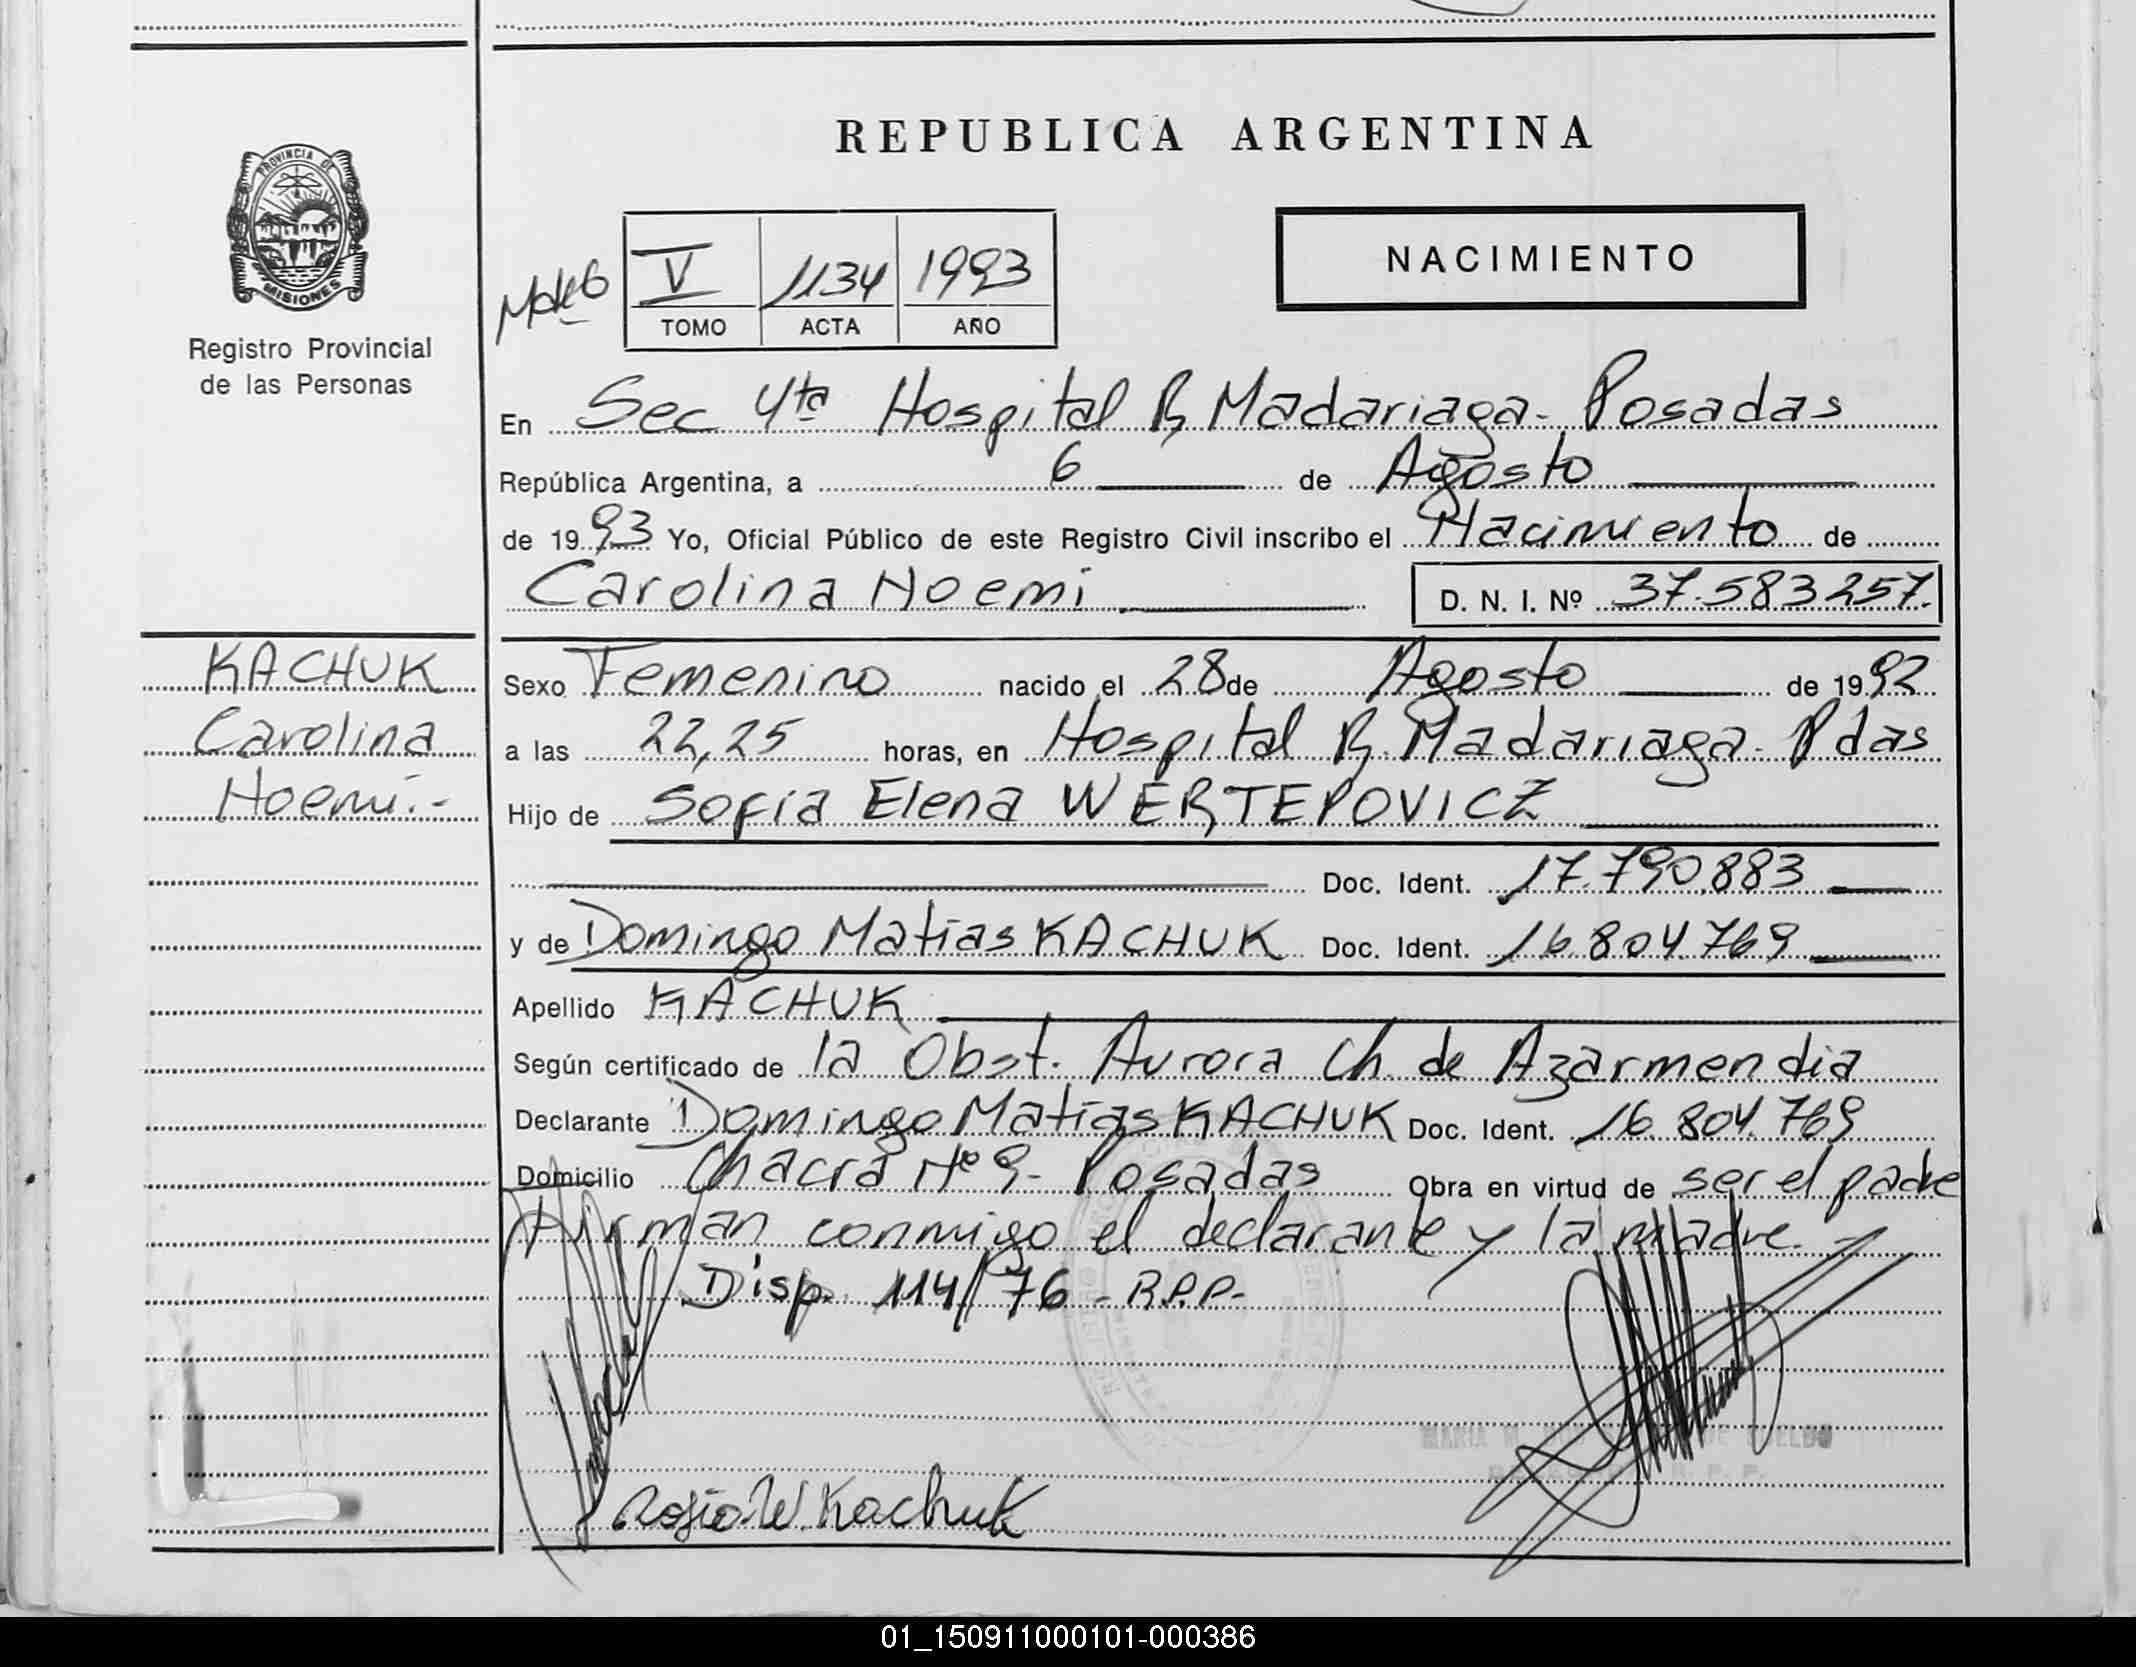 REPUBLICA ARGENTINA
PROVINCIA DE
MISIONES
Registro Provincial
de las Personas
NACIMIENTO
V 1134 1993
TOMO ACTA AÑO
En Sec 4ta Hospital R, Madariaga - Posadas
República Argentina, a 6 de Agosto
de 1993 Yo, Oficial Público de este Registro Civil inscribo el Nacimiento de
Carolina Noemi D. N. I. Nº 37.583.257.
KACHUK
Carolina
Noemi.-
Sexo Femenino nacido el 28 de Agosto de 1992
a las 22,25 horas, en Hospital R, Madariaga - Pdas
Hijo de Sofia Elena WERTEPOVICZ
Doc. Ident. 17.790.883
y de Domingo Matias KACHUK Doc. Ident. 16.804.769
Apellido KACHUK
Según certificado de la Obst. Aurora Ch. de Azarmendia
Declarante Domingo Matias KACHUK Doc. Ident. 16.804.769
Domicilio Chacra Nº 9- Posadas Obra en virtud de ser el padre
Firman conmigo el declarante y la madre.-
Disp. 114/76 - R.P.P.-
Kachuk
01_150911000101-000386